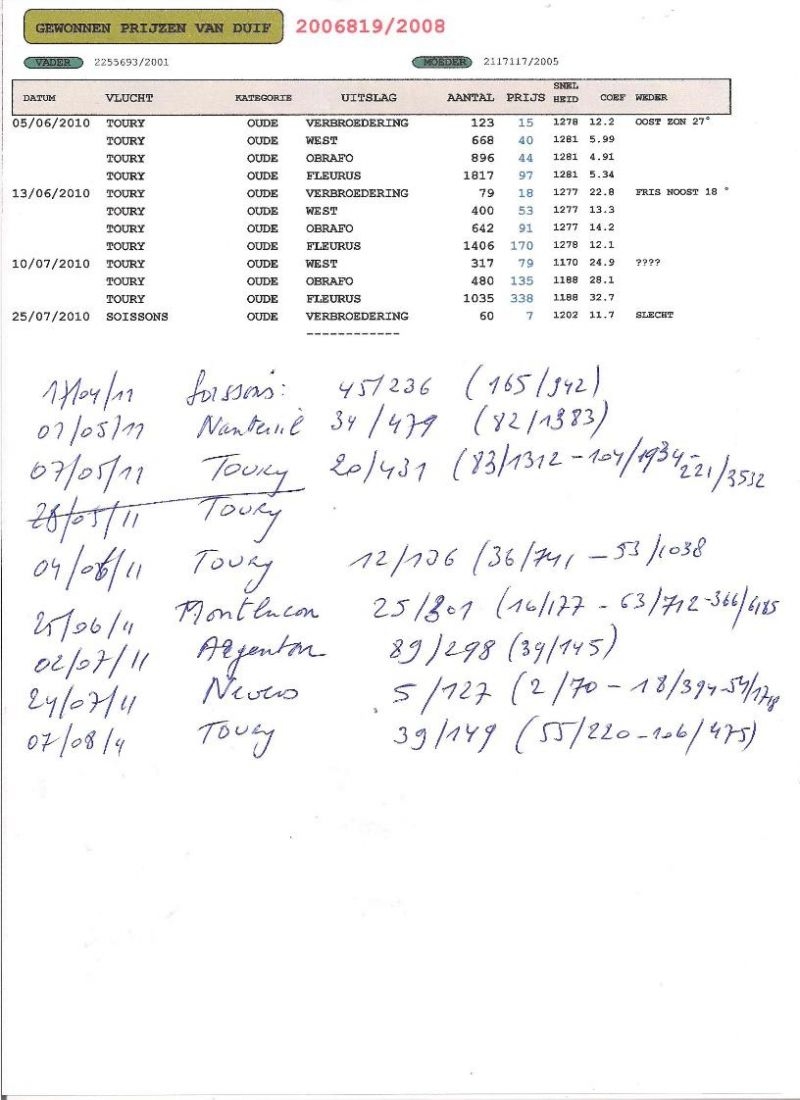 GEWONNEN PRIJZEN VAN DUIF 2006819/2008
VADER 2255693/2001 MOEDER 2117117/2005
DATUM VLUCHT KATEGORIE UITSLAG AANTAL PRIJS SNEL HEID COEF WEDER
05/06/2010 TOURY OUDE VERBROEDERING 123 15 1278 12.2 OOST ZON 27°
TOURY OUDE WEST 668 40 1281 5.99
TOURY OUDE OBRAFO 896 44 1281 4.91
TOURY OUDE FLEURUS 1817 97 1281 5.34
13/06/2010 TOURY OUDE VERBROEDERING 79 18 1277 22.8 FRIS NOOST 18 °
TOURY OUDE WEST 400 53 1277 13.3
TOURY OUDE OBRAFO 642 91 1277 14.2
TOURY OUDE FLEURUS 1406 170 1278 12.1
10/07/2010 TOURY OUDE WEST 317 79 1170 24.9 ????
TOURY OUDE OBRAFO 480 135 1188 28.1
TOURY OUDE FLEURUS 1035 338 1188 32.7
25/07/2010 SOISSONS OUDE VERBROEDERING 60 7 1202 11.7 SLECHT
-------------
17/04/11 Soissons: 45/236 (165/942)
01/05/11 Nanteuil 34/479 (82/1383)
07/05/11 Toury 20/431 (83/1312 - 104/1934 - 221/3532
28/05/11 Toury
04/06/11 Toury 12/136 (36/741 - 53/1038
25/06/11 Montlucon 25/301 (16/177 - 63/712 - 366/6185
02/07/11 Argenton 89/298 (39/145)
24/07/11 Nevers 5/127 (2/70 - 18/394 - 54/1718
07/08/11 Toury 39/149 (55/220 - 106/475)